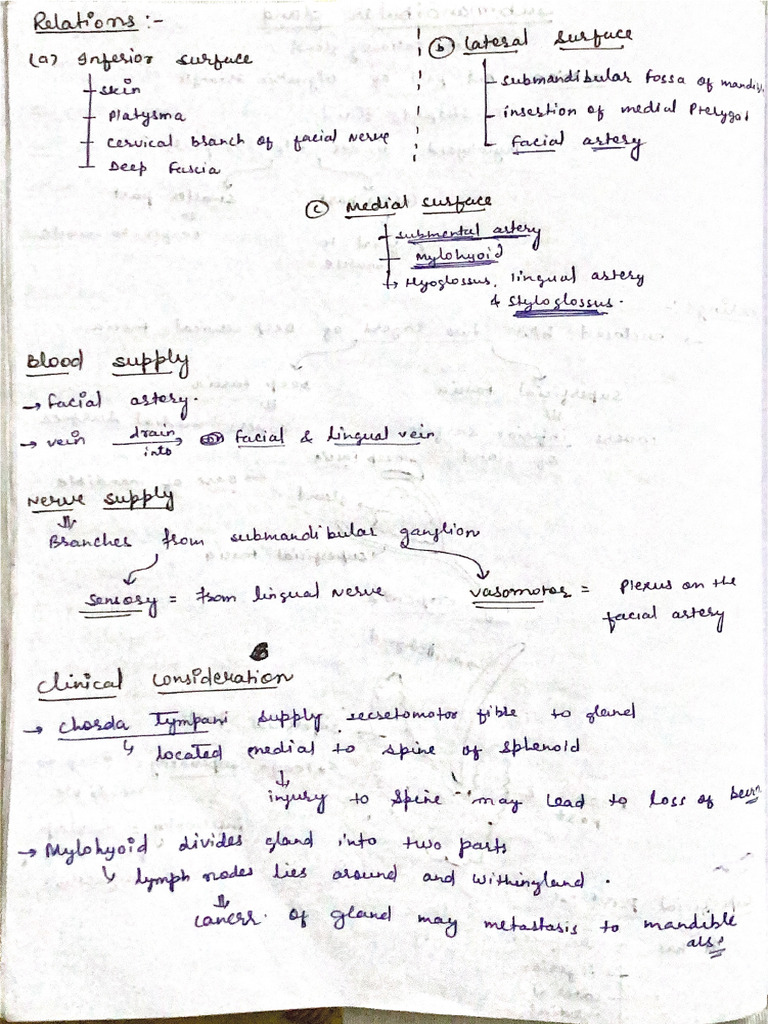 Relations :-
(a) Inferior surface
skin
Platysma
cervical branch of facial nerve
Deep Fascia
(b) Lateral surface
submandibular fossa of mandi
insertion of medial Pterygoi
facial artery
(c) Medial surface
submental artery
Mylohyoid
Hyoglossus, lingual artery
& Styloglossus.
Blood supply
→ facial artery.
→ vein drain into facial & lingual vein
Nerve supply
Branches from submandibular ganglion
sensory = from lingual nerve
vasomotor = Plexus on the
facial artery
Clinical consideration
→ chorda Tympani supply secretomotor fibre to gland
located medial to spine of sphenoid
injury to spine may lead to loss of
→ Mylohyoid divides gland into two parts
lymph nodes lies around and within gland.
cancer of gland may metastasis to mandible
also